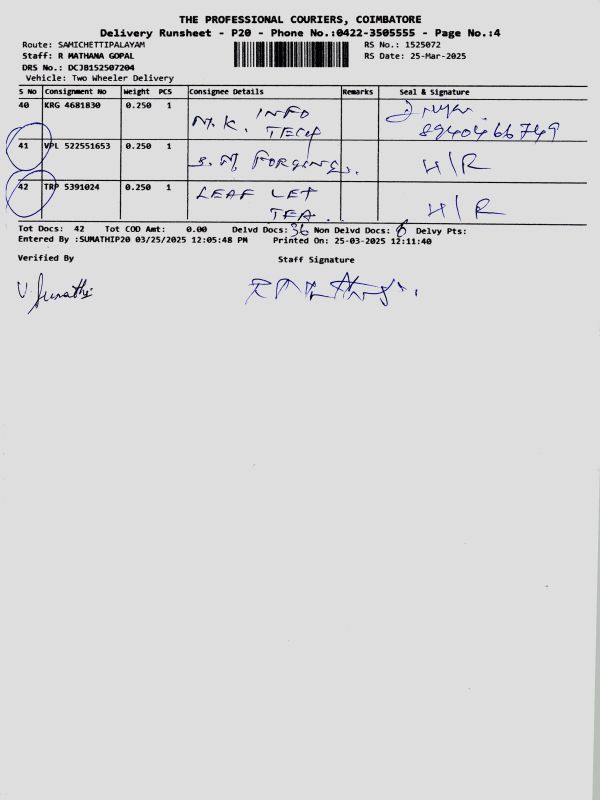 THE PROFESSIONAL COURIERS, COIMBATORE
Delivery Runsheet - P20 - Phone No.:0422-3505555 - Page No.:4
Route: SAMICHETTIPALAYAM RS No.: 1525072
Staff: R MATHANA GOPAL RS Date: 25-Mar-2025
DRS No.: DCJB152507204
Vehicle: Two Wheeler Delivery
S No Consignment No Weight PCS Consignee Details Remarks Seal & Signature
40 KRG 4681830 0.250 1 M.K. INFO
TECH 8940466749
41 VPL 522551653 0.250 1 S.M. FORGING. H/R
42 TRP 5391024 0.250 1 LEAF LET
TEA. H/R
Tot Docs: 42 Tot COD Amt: 0.00 Delvd Docs: 36 Non Delvd Docs: 6 Delvy Pts:
Entered By :SUMATHIP20 03/25/2025 12:05:48 PM Printed On: 25-03-2025 12:11:40
Verified By Staff Signature
V. Sumathi